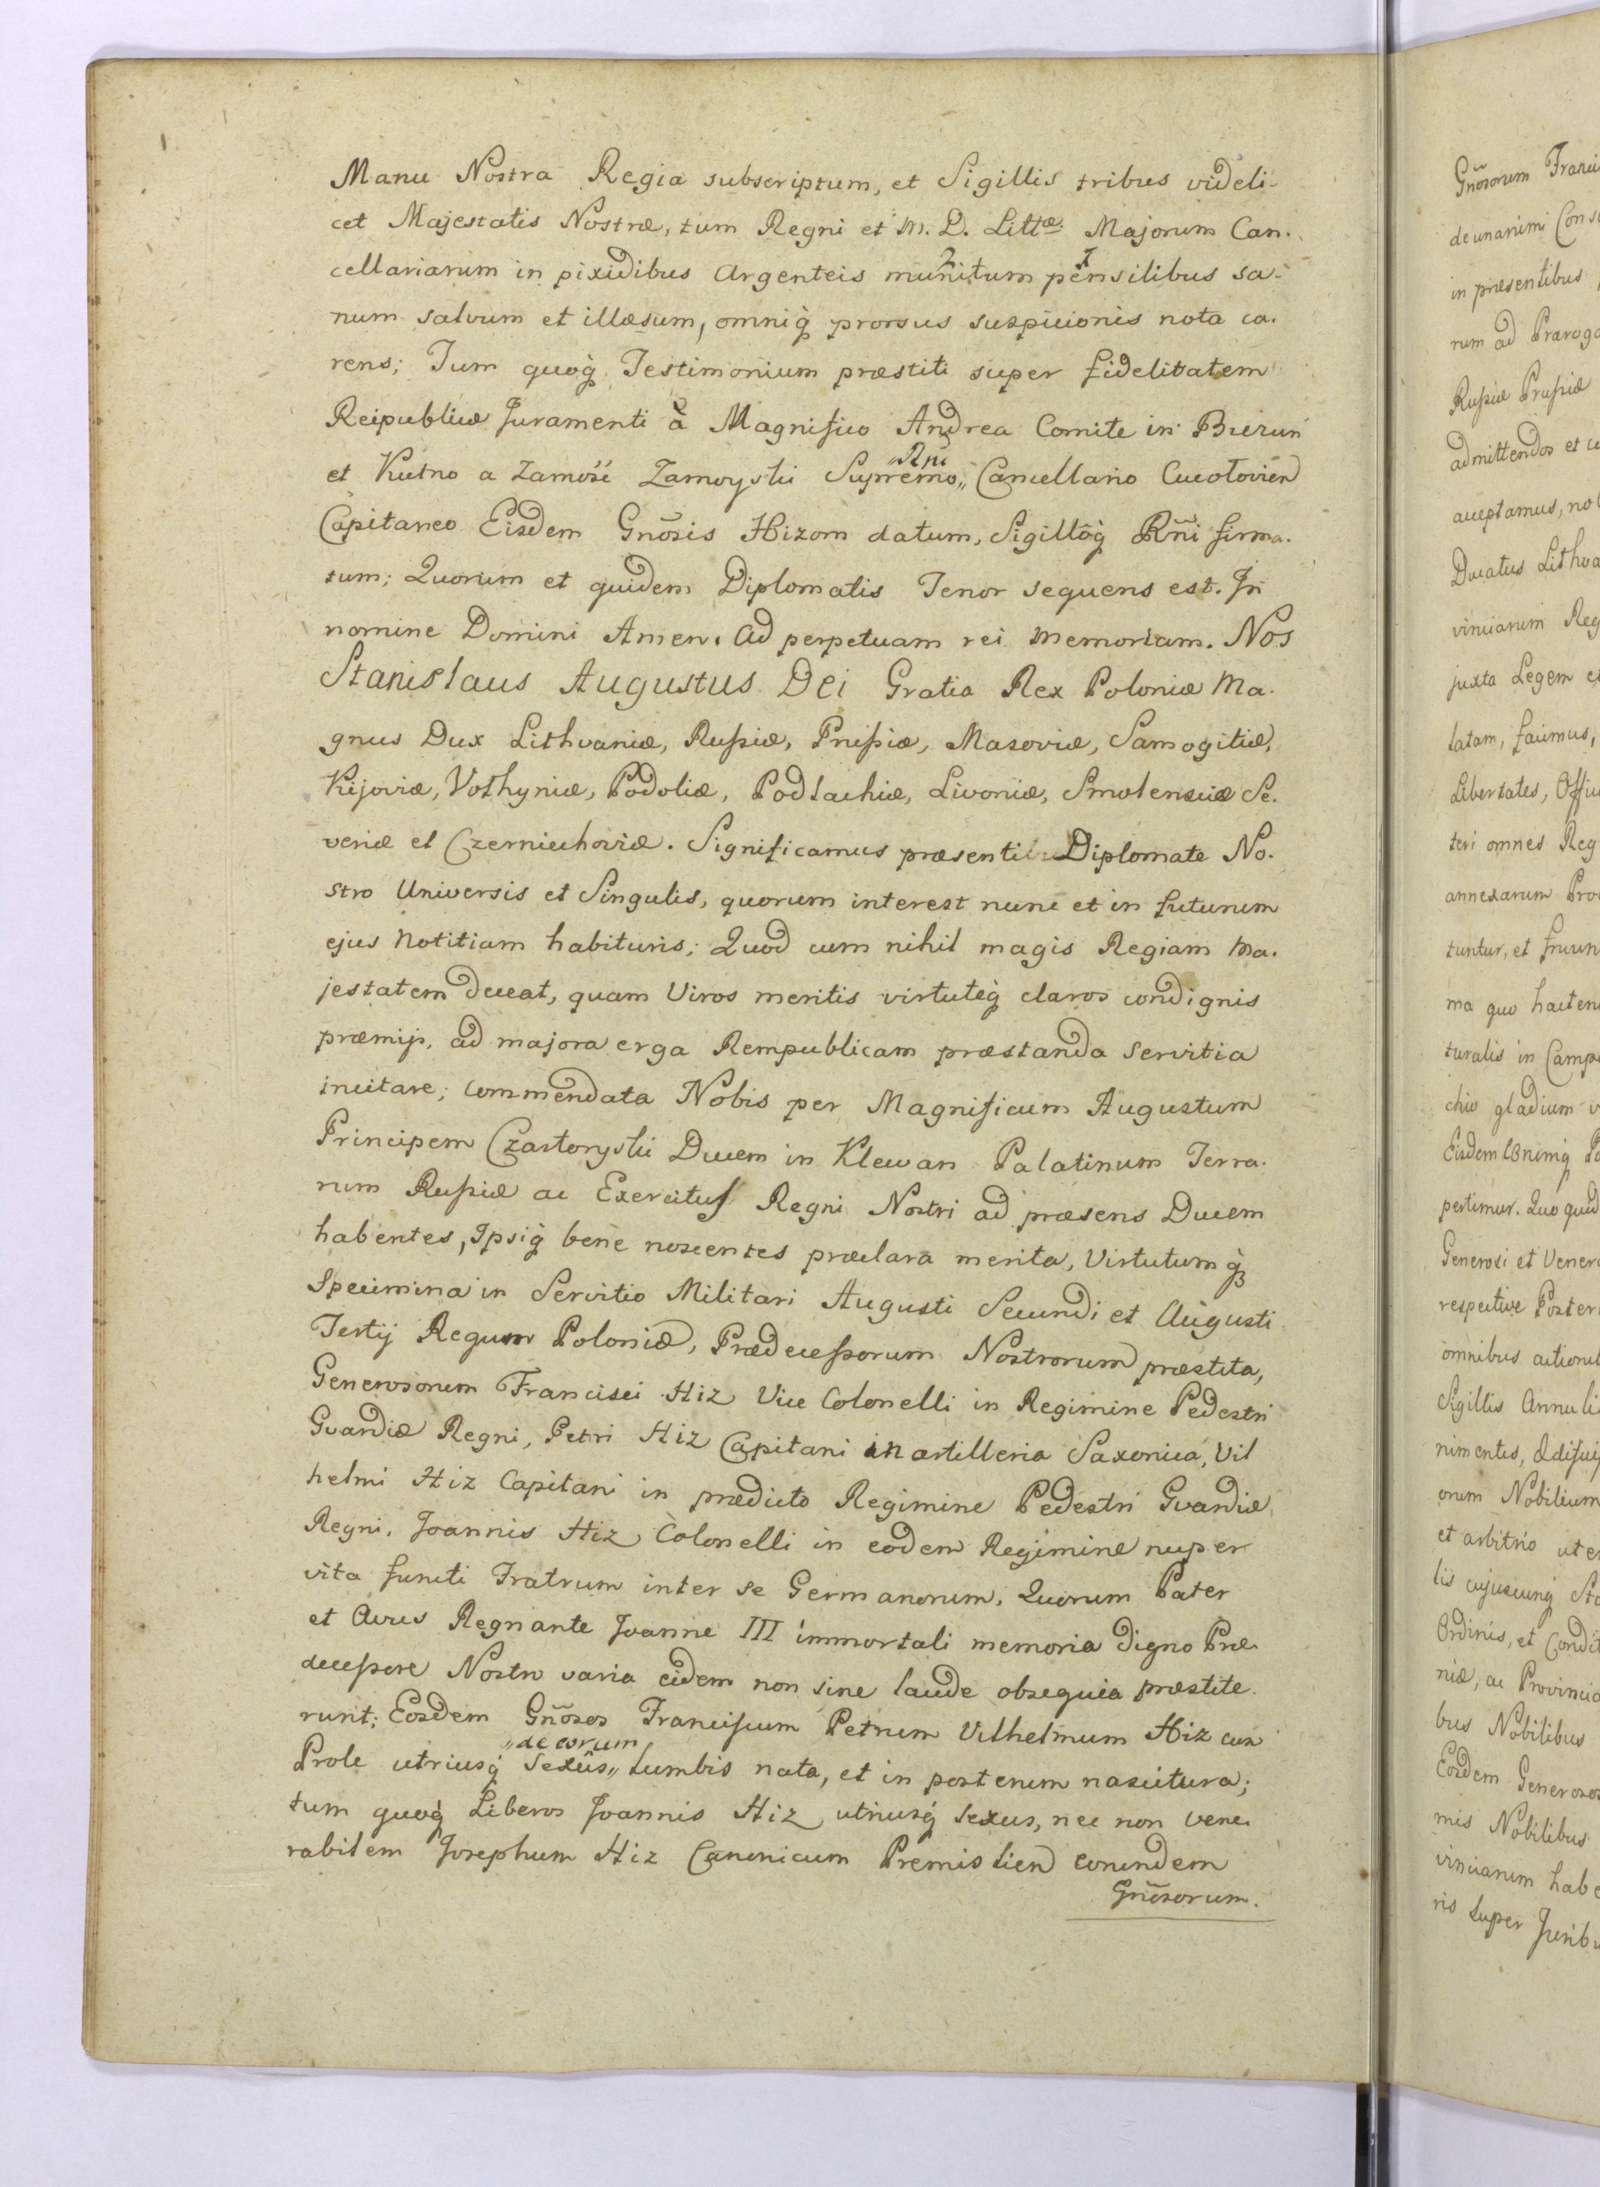 Manu Nostra Regia subscriptum, et Sigillis tribus videli-
cet Majestatis Nostræ, tum Regni et M. D. Littæ Majorum Can-
cellariarum in pixidibus argenteis munitum pensilibus sa-
num salvum et illæsum, omniq̀ prorsus suspicionis nota ca-
rens; Tum quoq̀ Testimonium præstiti super fidelitatem
Reipublicæ Juramenti à Magnifico Andrea Comite in Biezun
et Kutno a Zamość Zamoyski Supremo „Rni„ Cancellario
Capitaneo Eisdem Gnõsis Hizom datum, Sigilloq̀ Rñi firma-
tum; Quorum et quidem Diplomatis Tenor sequens est. In
nomine Domini Amen. Ad perpetuam rei memoriam. Nos
Stanislaus Augustus Dei Gratia Rex Poloniæ Ma-
gnus Dux Lithvaniæ, Russiæ, Prussiæ, Masoviæ, Samogitiæ,
Kijoviæ, Volhyniæ, Podoliæ, Podlachiæ, Livoniæ, Smolensciæ Se-
veriæ et Czerniechoviæ. Significamus præsenti Diplomate No-
stro Universis et Singulis, quorum interest nunc et in futurum
ejus Notitiam habituris; Quod cum nihil magis Regiam Ma-
jestatem deceat, quam Viros meritis virtuteq̀ claros condignis
præmijs, ad majora erga Rempublicam præstanda servitia
incitare; commendata Nobis per Magnificum Augustum
Principem Czartoryski Ducem in Klewan Palatinum Terra-
rum Russiæ ac Exercitus Regni Nostri ad præsens Ducem
habentes, Ipsiq̀ bene noscentes præclara merita, Virtutumq̀
Specimina in Servitio Militari Augusti Secundi et Augusti
Tertij Regum Poloniæ, Prædecessorum Nostrorum præstita,
Generosorum Francisci Hiz Vice Colonelli in Regimine Pedestri
Gvardiæ Regni, Petri Hiz Capitani in artilleria Saxonica, Vil
helmi Hiz Capitani in prædicto Regimine Pedestri Gvardiæ
Regni, Joannis Hiz Colonelli in eodem Regimine nuper
vita functi Fratrum inter se Germanorum, Quorum Pater
et Avus Regnante Joanne III immortali memoria digno Præ-
decessore Nostro varia eidem non sine laude obsequia præstite-
runt; Eosdem Gñosos Franciscum Petrum Vilhelmum Hiz cum
Prole utriusq̀ Sexûs „de eorum„ lumbis nata, et in posterum nascitura;
tum quoq̀ Liberos Joannis Hiz utriusq̀ sexus, nec non Vene-
rabilem Josephum Hiz Canonicum Premislien eorundem
Gnõsorum.
Gñosorum
de unanimi
in præsentibus
rum ad
Russiæ Prussiæ
admittendos et
acceptamus,
Ducatus
vinciarum
juxta Legem
latam, facimus,
Libertates,
teri omnes
annexarum
tuntur, et
ma quo
turalis in
chio gladium
Eisdem
pertimur. Quo
Generosi et
respective
omnibus
Sigillis
nimentis,
orum
et arbitrio
lis cujuscunq̀
Ordinis, et
niæ, ac
bus Nobilibus
Eosdem
mis Nobilibus
vinciarum
ris super